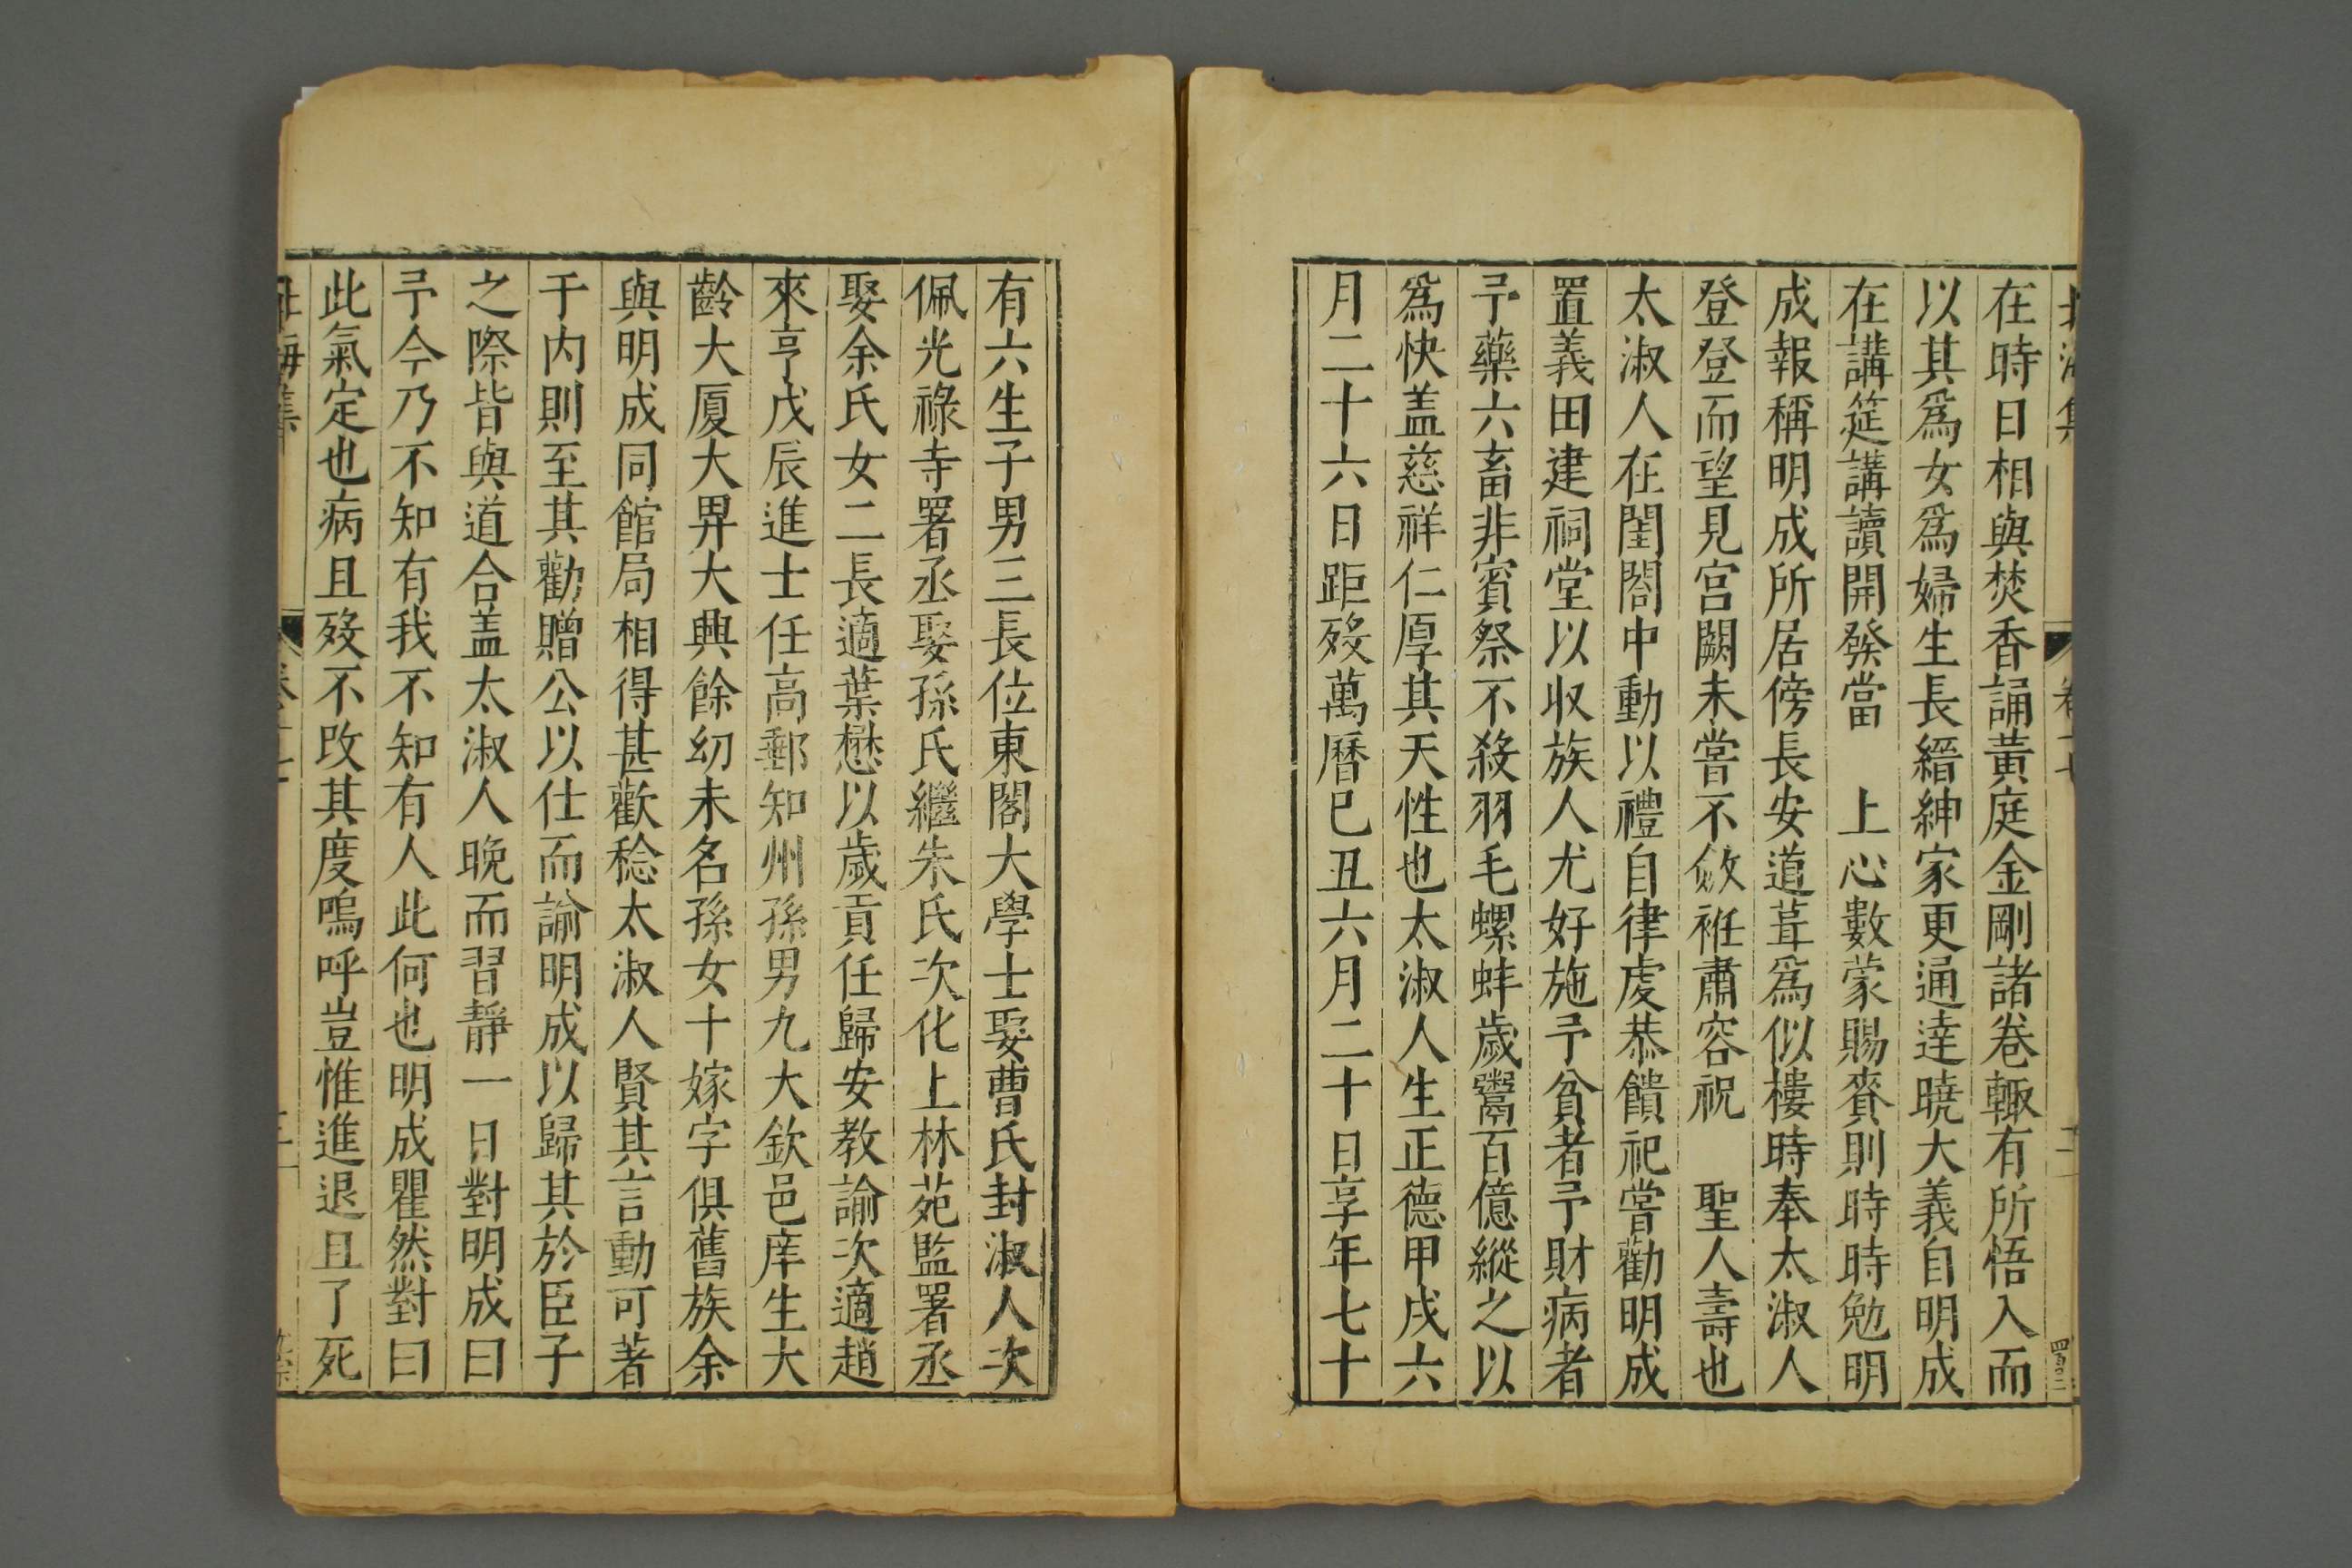 在時日相與焚香誦黃庭金剛諸卷輙有所悟入而
以其爲女爲婦生長縉紳家更通達曉大義自明成
在講筵講讀開發當　上心數蒙賜賚則時時勉明
成報稱明成所居傍長安道葺爲似樓時奉太淑人
登登而望見宫闕未嘗不斂袵肅容祝　聖人壽也
太淑人在閨閤中動以禮自律虔恭饋祀嘗勸明成
置義田建祠堂以収族人尤好施予貧者予財病者
予藥六畜非賓祭不殺羽毛螺蚌歲鬻百億縱之以
爲快盖慈祥仁厚其天性也太淑人生正德甲戌六
月二十六日距歿萬曆巳丑六月二十日享年七十
有六生子男三長位東閣大學士娶曹氏封淑人次
佩光祿寺署丞娶孫氏繼朱氏次化上林苑監署丞
娶余氏女二長適葉懋以歲貢任歸安教諭次適趙
來亨戊辰進士任高郵知州孫男九大欽邑庠生大
齡大厦大畀大興餘幼未名孫女十嫁字俱舊族余
與明成同館局相得甚歡稔太淑人賢其言動可著
于内則至其勸贈公以仕而諭明成以歸其於臣子
之際皆與道合盖太淑人晚而習靜一日對明成曰
予今乃不知有我不知有人此何也明成瞿然對曰
此氣定也病且歿不改其度嗚呼豈惟進退且了死